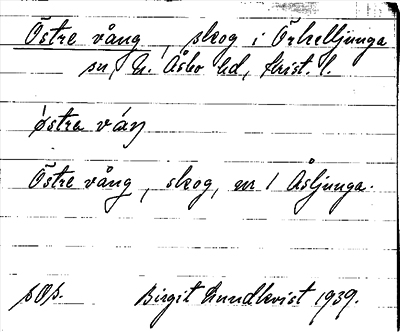 Östre vång, skog i Örkelljunga
sn, N. Åsbo hd, Krist. l.
östra váŋ
Östre vång, skog, nr 1 Åsljunga.
sOp. Birgit Lundkvist 1939.